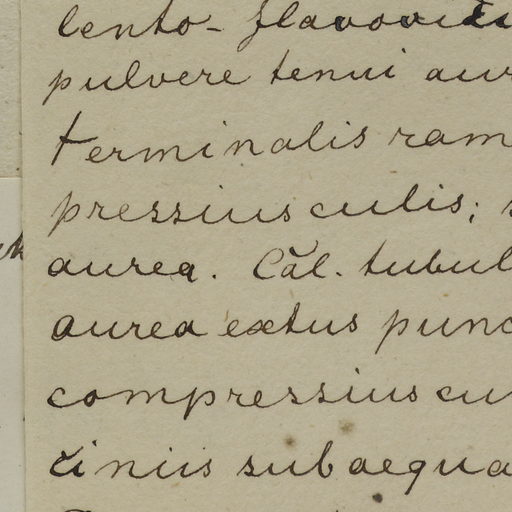 lento- flavovi
pulvere tenui aur
terminalis ram
pressius culis;
aurea. Căl. tubul
aurea extus punc
compressius cu
ciniis subaequa